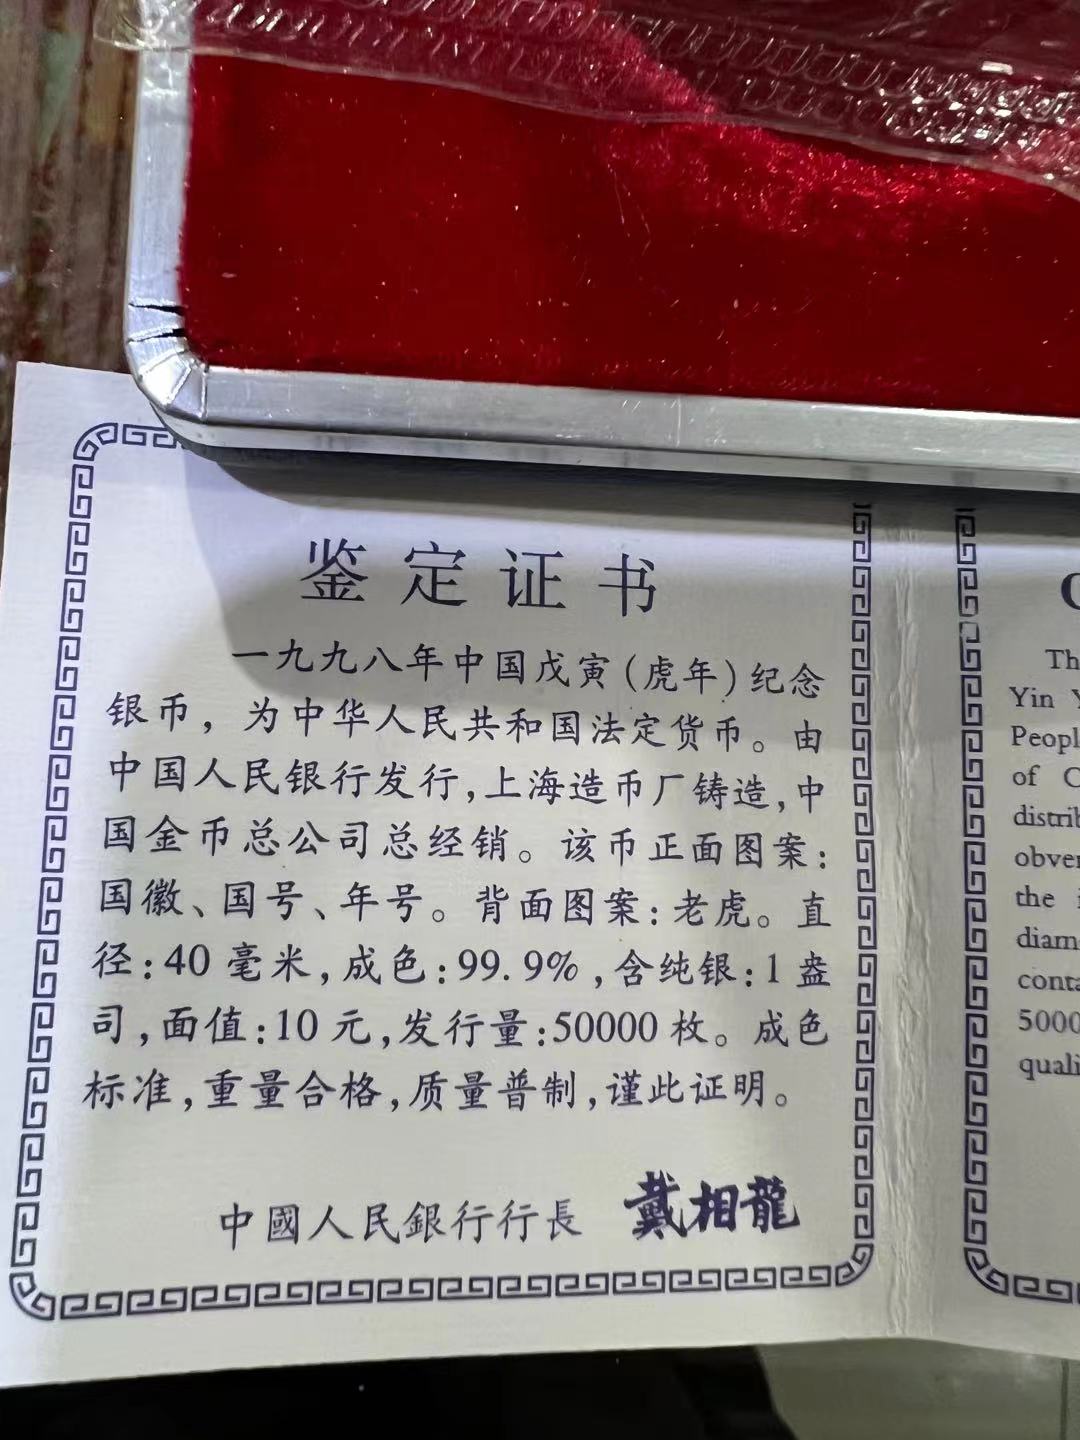 鉴定证书
一九九八年中国戊寅(虎年)纪念
银币，为中华人民共和国法定货币。由
中国人民银行发行,上海造币厂铸造,中
国金币总公司总经销。该币正面图案:
国徽、国号、年号。背面图案:老虎。直
径:40毫米,成色:99.9%,含纯银:1盎
司,面值:10元,发行量:50000枚。成色
标准,重量合格,质量普制,谨此证明。
中國人民銀行行長 戴相龍
C
Th
Yin Y
Peopl
of C
distrib
obver
the i
diam
conta
5000
quali